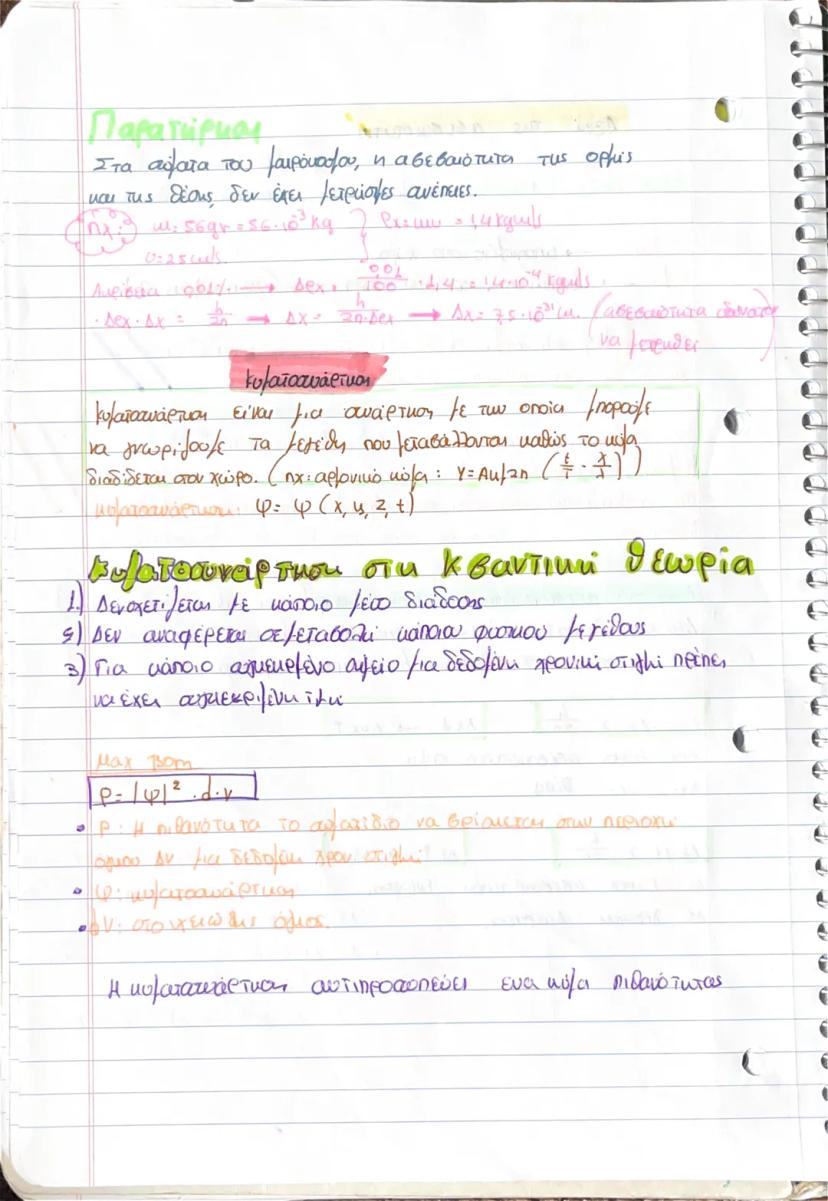 Παρατήρηση
Στα σώματα του μακρόκοσμου, η αβεβαιότητα της ορμής
και της θέσης δεν έχει μετρήσιμες συνέπειες.
πχ: m=56gr=56·10⁻³kg } Px=mu=1,4kgm/s
υ=25m/s
Ακρίβεια 0,01% → Δρx= 0,01/100 · 1,4=1,4·10⁻⁴kgm/s
·Δρx·Δx= h/2π → Δx= h/2π·Δρx → Δx=7,5·10⁻³¹m. (αβεβαιότητα αδύνατον
να μετρηθεί)
Κυματοσυνάρτηση
Κυματοσυνάρτηση είναι μια συνάρτηση με την οποία μπορούμε
να γνωρίζουμε τα μεγέθη που μεταβάλλονται καθώς το κύμα
διαδίδεται στον χώρο. (πχ: αρμονικό κύμα: Y=Aημ2π (t/T - x/λ))
κυματοσυνάρτηση: ψ=ψ(x,y,z,t)
Κυματοσυνάρτηση στη Κβαντική θεωρία
1) Δεν σχετίζεται με κάποιο μέσο διάδοσης
2) Δεν αναφέρεται σε μεταβολή κάποιου φυσικού μεγέθους
3) Για κάποιο συγκεκριμένο σημείο μια δεδομένη χρονική στιγμή πρέπει
να έχει συγκεκριμένη τιμή
Max Born
P=|ψ|²·d·v
• P: Η πιθανότητα το σωματίδιο να βρίσκεται στην περιοχή
όγκου ΔV μια δεδομένη χρον στιγμή
• ψ: κυματοσυνάρτηση
• ΔV: στοιχειώδης όγκος.
Η κυματοσυνάρτηση αντιπροσωπεύει ένα κύμα πιθανότητας